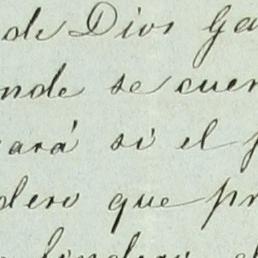 de Dios Ga
nde se cuen
ará si el f
dero que pr